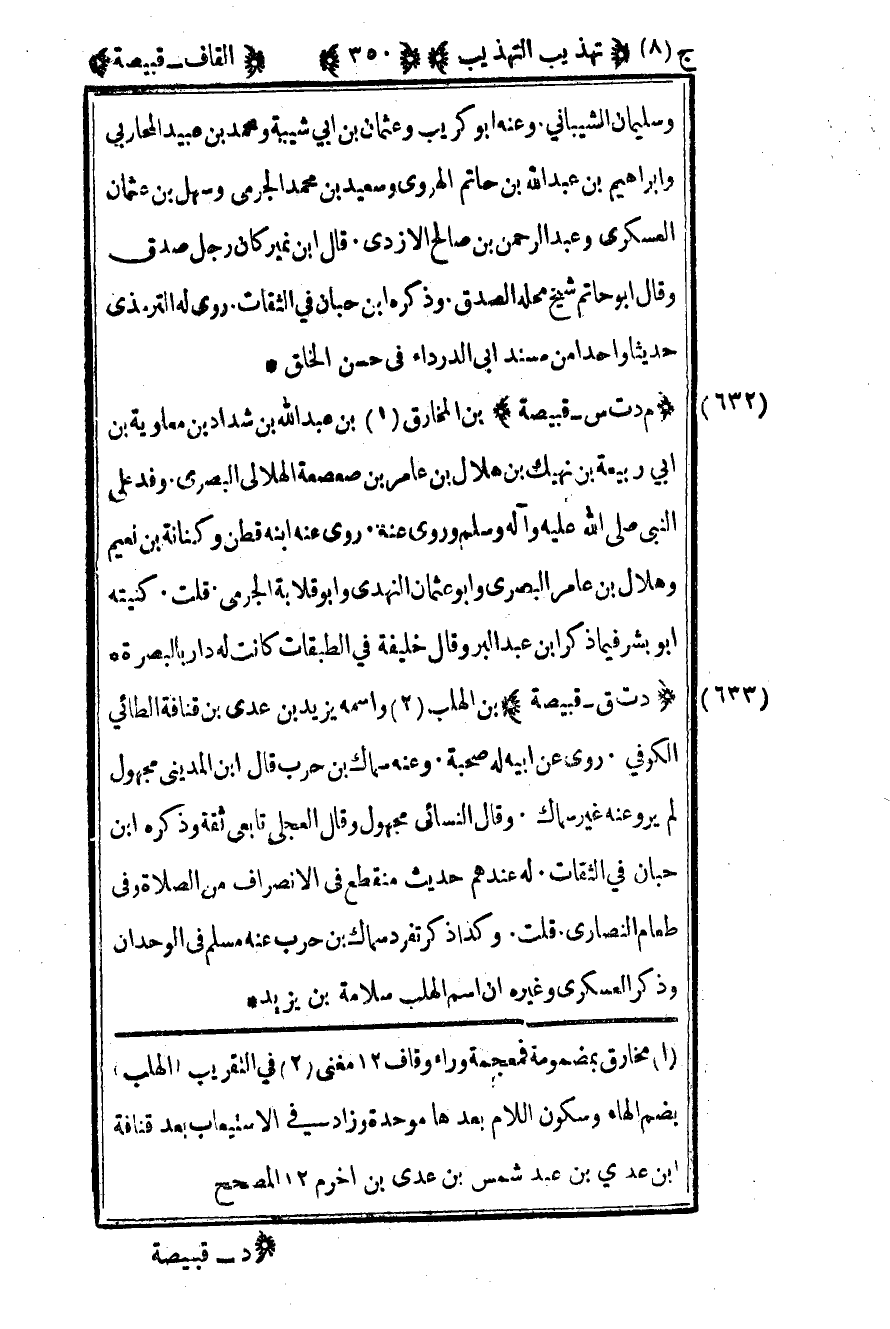 ج (٨) ﴿ تهذيب التهذيب ﴾ ﴿ ٣٥٠ ﴾ ﴿ القاف ــ قبيصة ﴾
وسليمان الشيباني ٠ وعنه ابوكريب وعثمان بن ابي شيبة ومحمد بن عبيد المحاربي
وابراهيم بن عبدالله بن حاتم الهروى وسعيد بن محمد الجرمى وسهل بن عثمان
العسكرى وعبدالرحمن بن صالح الازدى ٠ قال ابن نمير كان رجل صدق
وقال ابوحاتم شيخ محله الصدق ٠ وذكره ابن حبان في الثقات ٠ روى له الترمذى
حديثا واحدا من مسند ابى الدرداء فى حسن الخلق *
(٦٣٢) ﴿ م د ت س ــ قبيصة ﴾ بن المخارق (١) بن عبدالله بن شداد بن معاوية بن
ابي ربيعة بن نهيك بن هلال بن عامر بن صعصعة الهلالى البصرى ٠ وفد على
النبى صلى الله عليه وآله وسلم وروى عنه ٠ روى عنه ابنه قطن وكنانة بن نعيم
وهلال بن عامر البصرى وابوعثمان النهدى وابوقلابة الجرمى ٠ قلت ٠ كنيته
ابو بشر فيما ذكر ابن عبدالبر وقال خليفة في الطبقات كانت له دار بالبصرة *
(٦٣٣) ﴿ د ت ق ــ قبيصة ﴾ بن الهلب (٢) واسمه يزيد بن عدى بن قنافة الطائي
الكوفي ٠ روى عن ابيه له صحبة ٠ وعنه سماك بن حرب قال ابن المدينى مجهول
لم يرو عنه غير سماك ٠ وقال النسائى مجهول وقال العجلى تابعى ثقة وذكره ابن
حبان في الثقات ٠ له عندهم حديث منقطع فى الانصراف من الصلاة وفى
طعام النصارى ٠ قلت ٠ وكذا ذكر تفرد سماك بن حرب عنه مسلم فى الوحدان
وذكر العسكرى وغيره ان اسم الهلب سلامة بن يزيد *
(١) مخارق بمضمومة فمعجمة وراء وقاف ١٢ مغنى (٢) في التقريب (الهلب)
بضم الهاء وسكون اللام بعدها موحدة وزاد سيف الاستيعاب بعد قنافة
ابن عدي بن عبد شمس بن عدى بن اخرم ١٢ المصحح
﴿ د ــ قبيصة